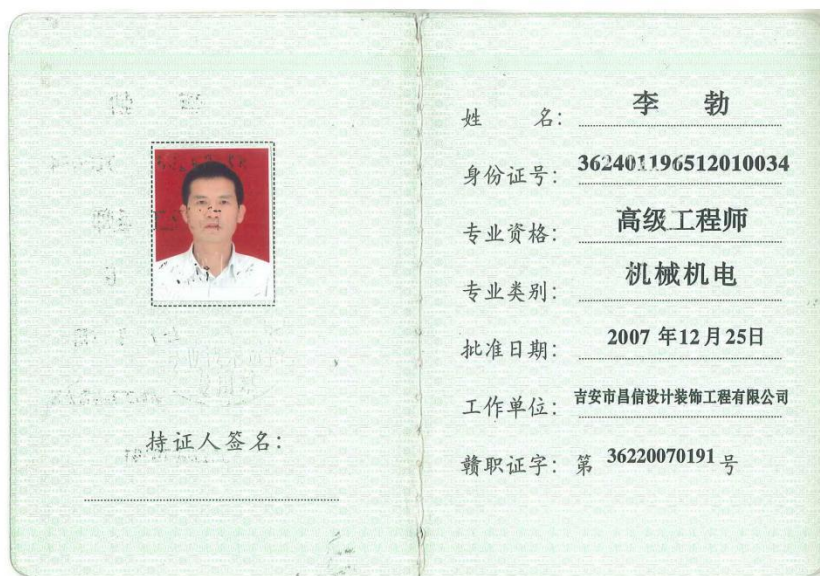 持证人签名：
姓 名： 李 勃
身份证号： 362401196512010034
专业资格： 高级工程师
专业类别： 机械机电
批准日期： 2007 年12月25日
工作单位： 吉安市昌信设计装饰工程有限公司
赣职证字： 第 36220070191 号